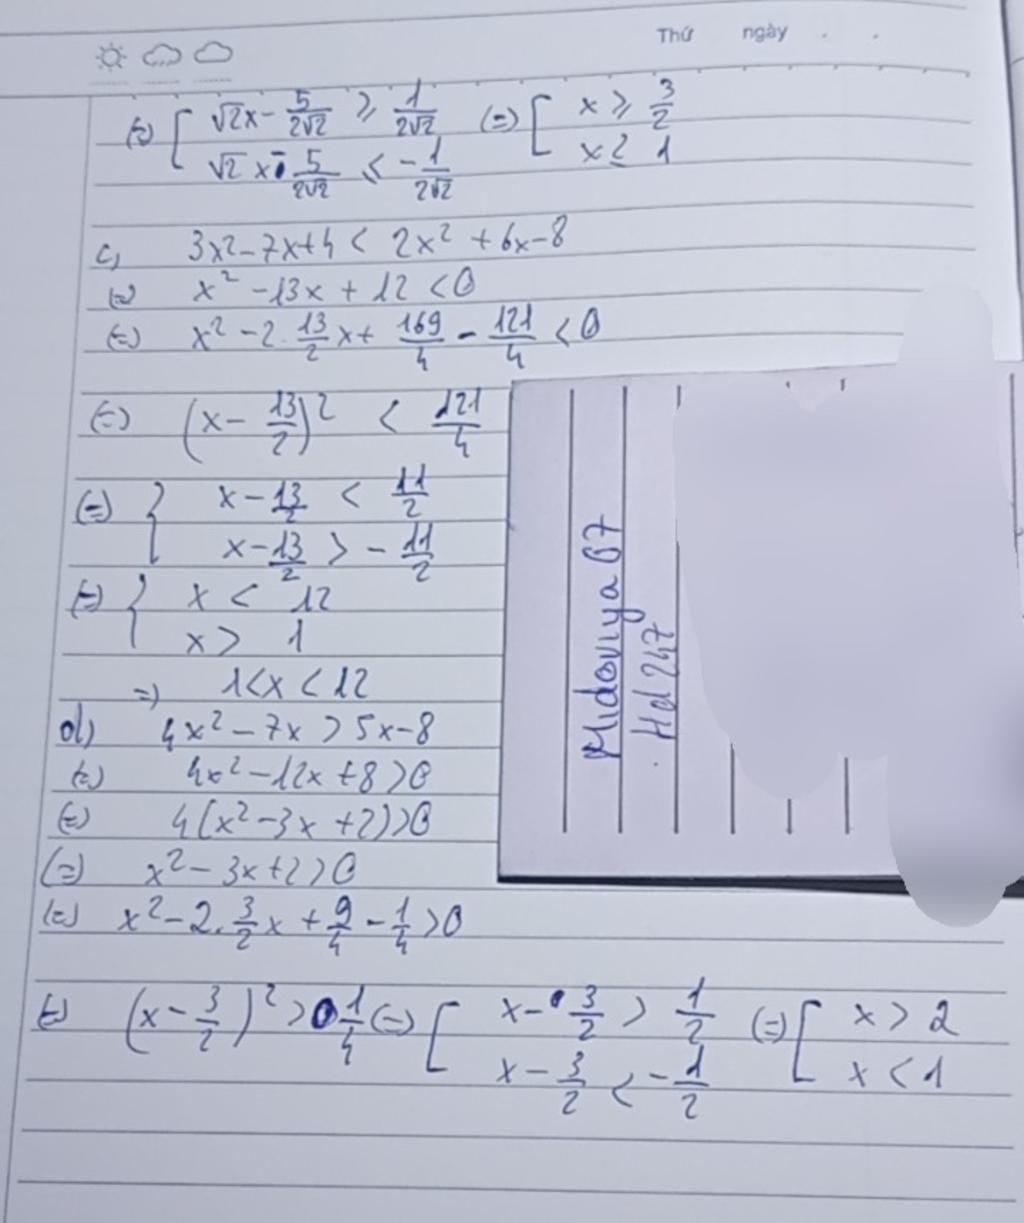 Thứ ngày . .
(=) [ √2x - 5/(2√2) ≥ 1/(2√2) (=) [ x ≥ 3/2
√2 x - 5/(2√2) ≤ -1/(2√2) x ≤ 1
c, 3x² - 7x + 4 < 2x² + 6x - 8
(=) x² - 13x + 12 < 0
(=) x² - 2. 13/2 x + 169/4 - 121/4 < 0
(=) (x - 13/2)² < 121/4
(=) { x - 13/2 < 11/2
x - 13/2 > - 11/2
(=) { x < 12
x > 1
=) 1 < x < 12
d) 4x² - 7x > 5x - 8
(=) 4x² - 12x + 8 > 0
(=) 4(x² - 3x + 2) > 0
(=) x² - 3x + 2 > 0
(=) x² - 2. 3/2 x + 9/4 - 1/4 > 0
(=) (x - 3/2)² > 1/4 (=) [ x - 3/2 > 1/2 (=) [ x > 2
x - 3/2 < - 1/2 x < 1
Midoviya 07
. Hd 247